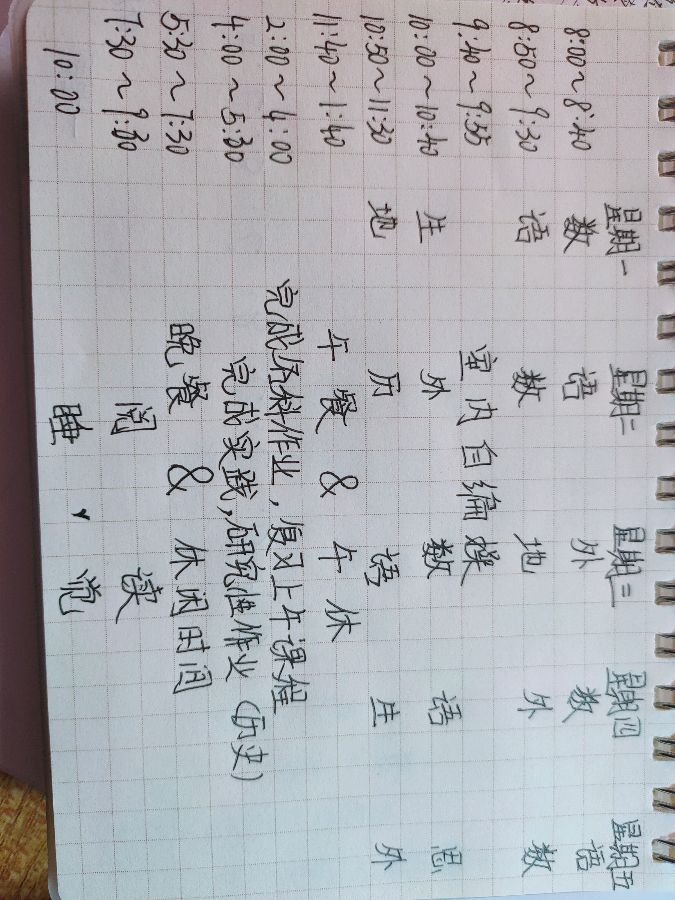 星期一 星期二 星期三 星期四 星期五
8:00~8:40 数 语 外 数 语
8:50~9:30 语 数 地 外 数
9:40~9:55 室内自编操
10:00~10:40 生 外 数 语 思
10:50~11:30 地 历 语 生 外
11:40~1:40 午餐 & 午休
2:00~4:00 完成各科作业,复习上午课程
4:00~5:30 完成实践,研究性作业(历史)
5:30~7:30 晚餐 & 休闲时间
7:30~9:30 阅 读
10:00 睡 觉